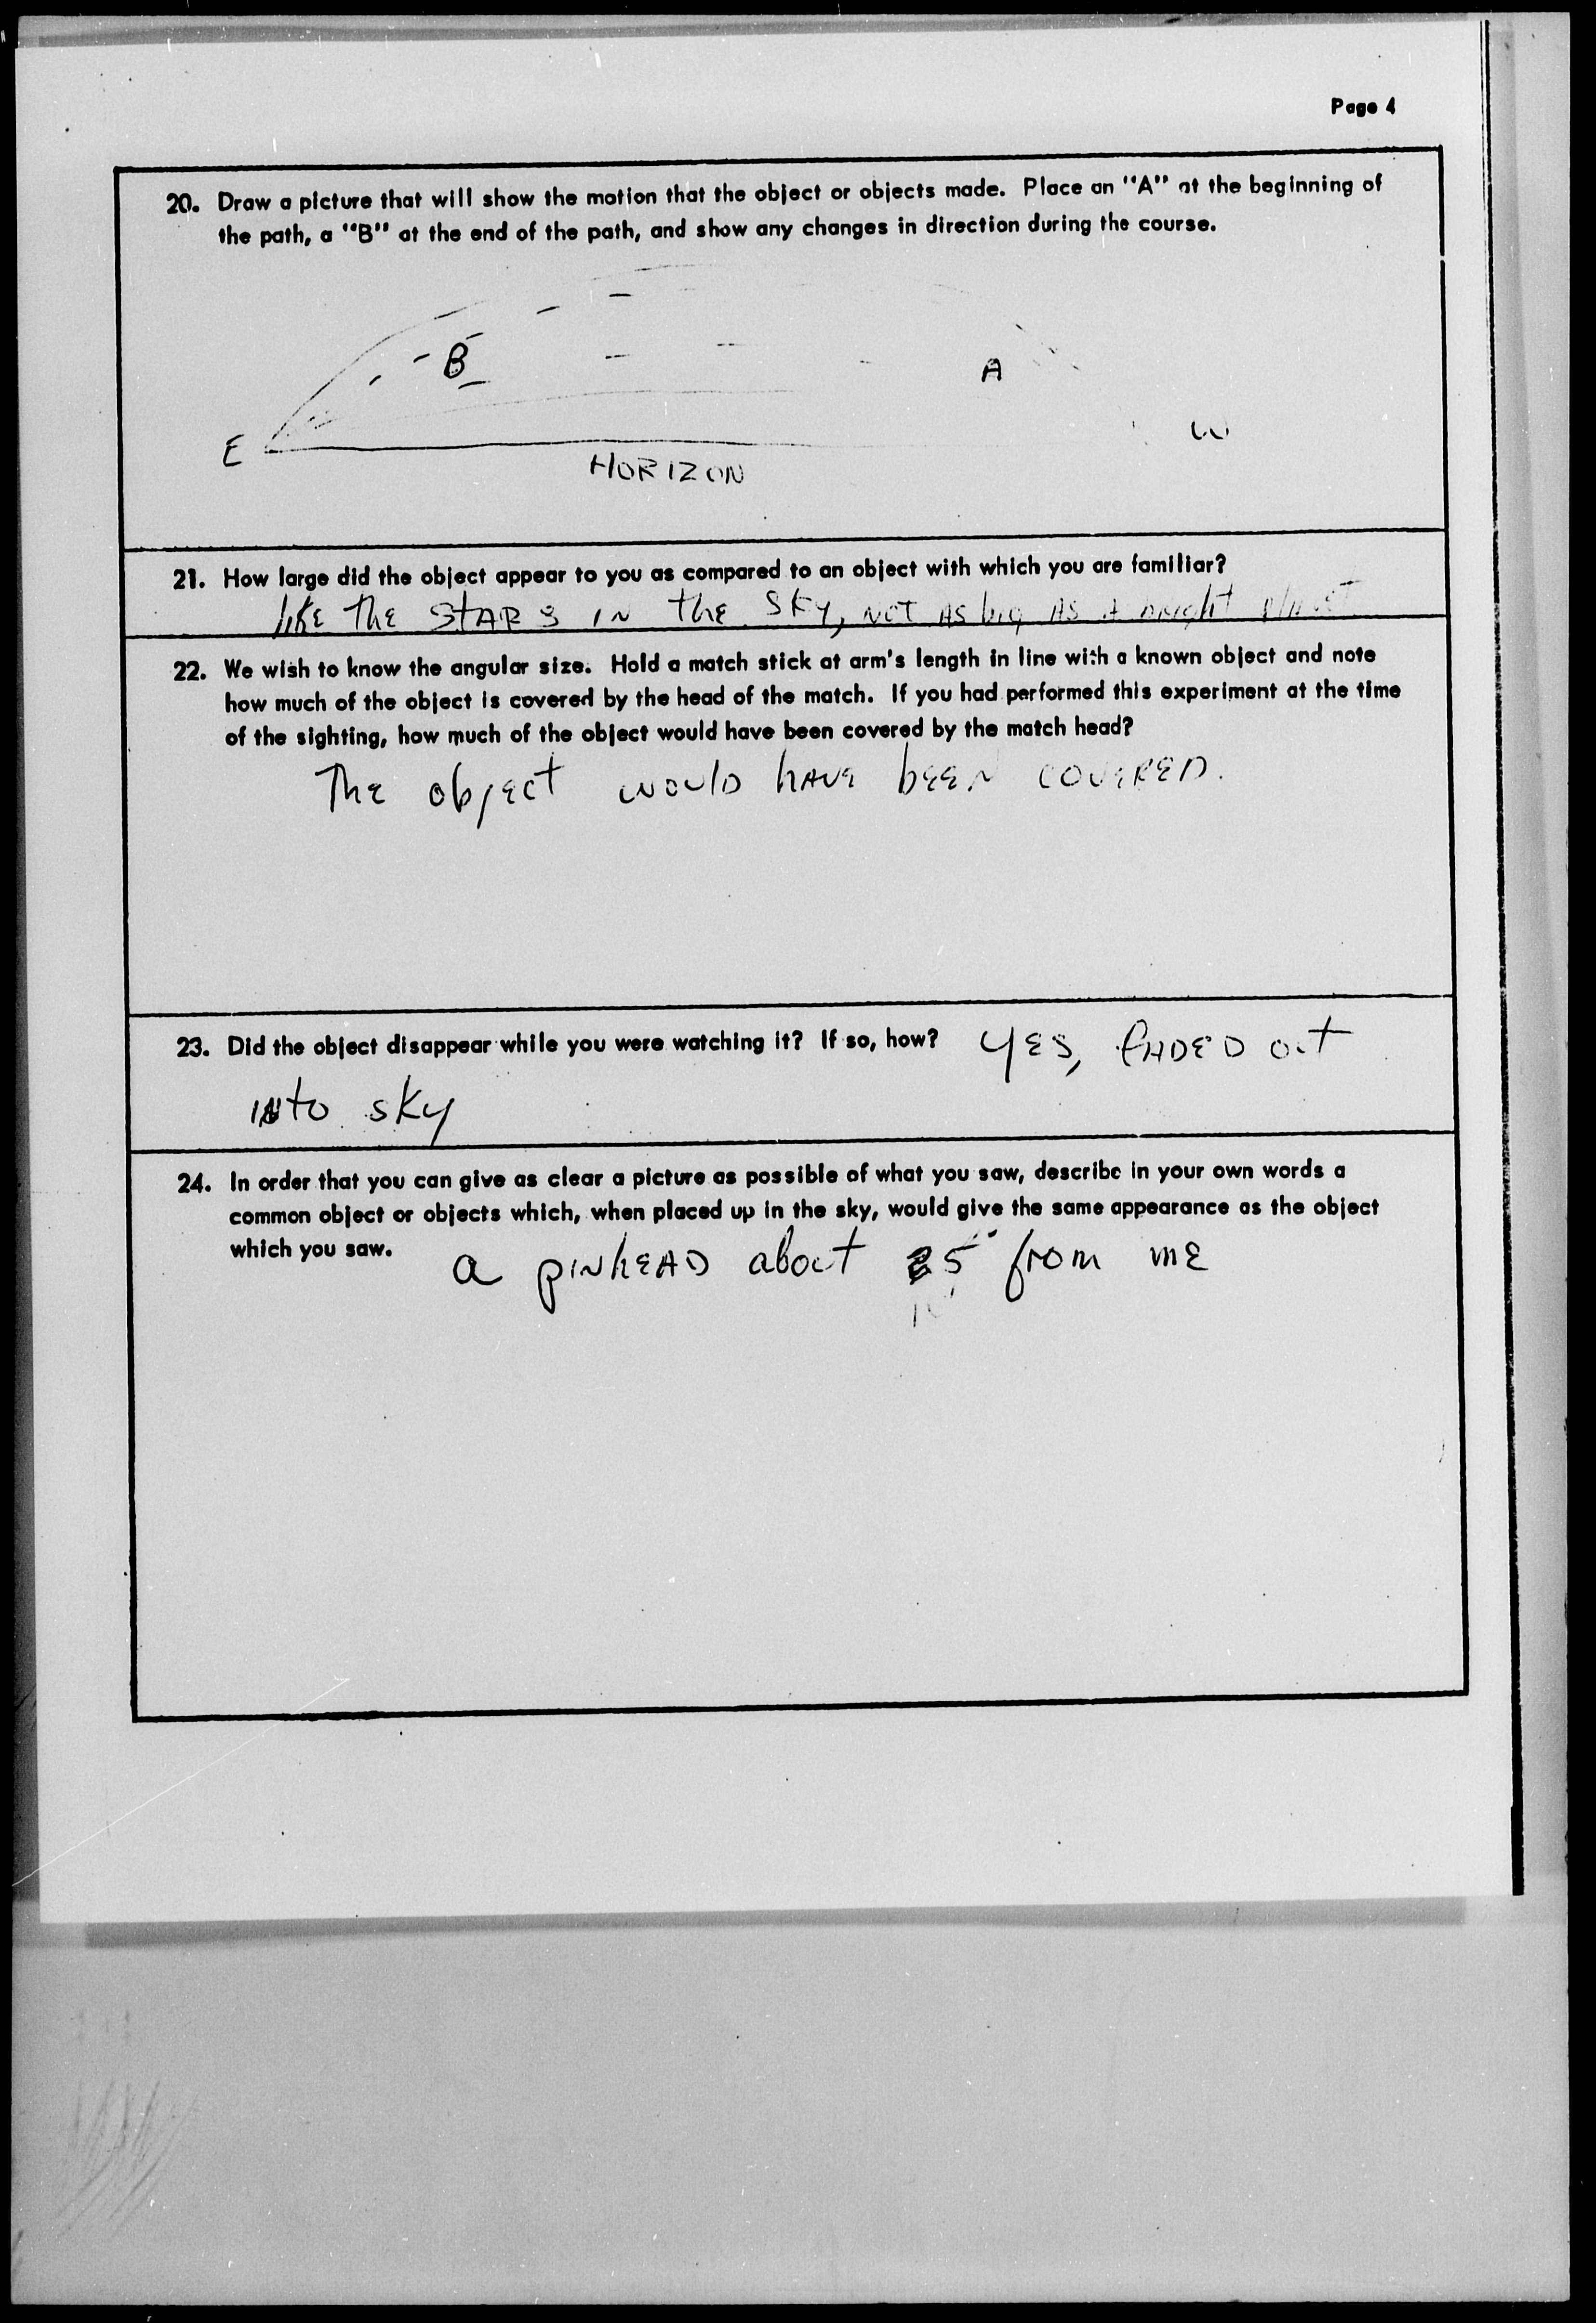 Page 4
20. Draw a picture that will show the motion that the object or objects made. Place an "A" at the beginning of
the path, a "B" at the end of the path, and show any changes in direction during the course.
B
A
E
W
HORIZON
21. How large did the object appear to you as compared to an object with which you are familiar?
like The STARS IN the SKy, NOT AS big AS A bright planet
22. We wish to know the angular size. Hold a match stick at arm's length in line with a known object and note
how much of the object is covered by the head of the match. If you had performed this experiment at the time
of the sighting, how much of the object would have been covered by the match head?
The object would have been covered.
23. Did the object disappear while you were watching it? If so, how? YES, FADED out
into sky
24. In order that you can give as clear a picture as possible of what you saw, describe in your own words a
common object or objects which, when placed up in the sky, would give the same appearance as the object
which you saw. a pinhead about from me